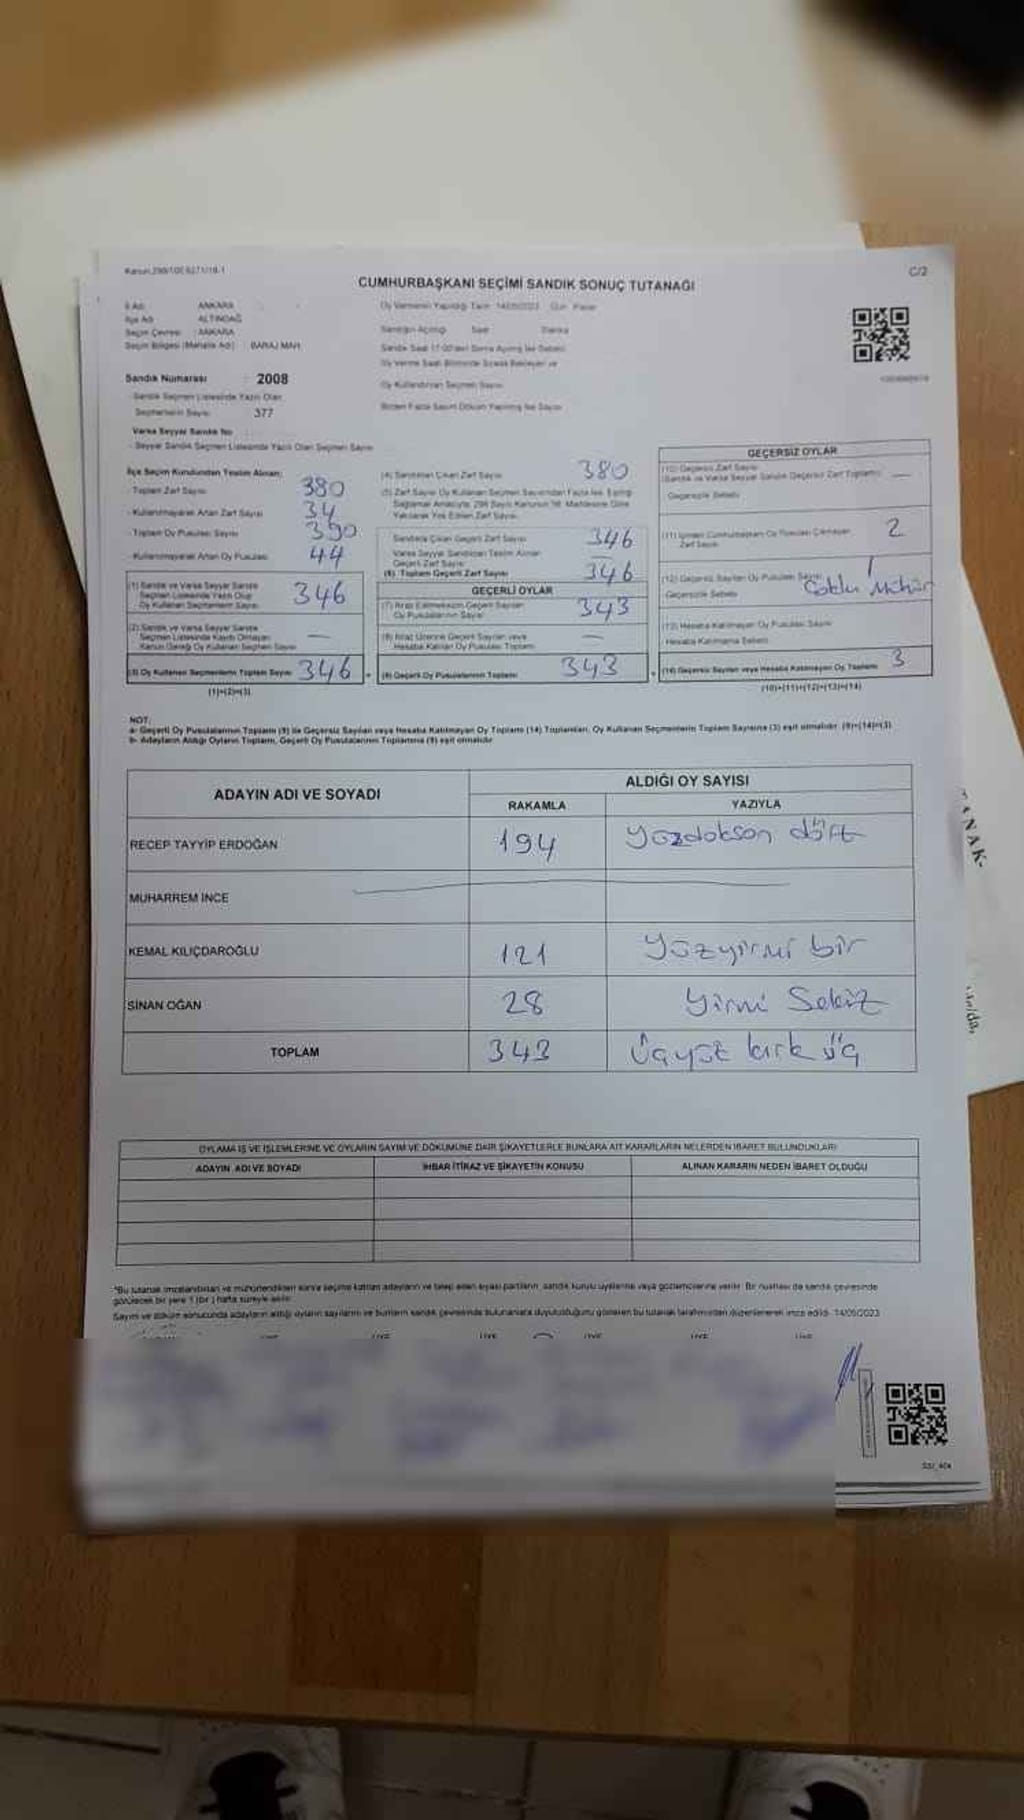 C/2
CUMHURBAŞKANI SEÇİMİ SANDIK SONUÇ TUTANAĞI
İl Adı ANKARA
İlçe Adı ALTINDAĞ
Seçim Çevresi : ANKARA
Seçim Bölgesi (Mahalle Adı) BARAJ MAH.
Oy Vermenin Yapıldığı Tarih 14/05/2023 Gün Pazar
Sandığın Açıldığı Saat Dakika
Sandık Numarası : 2008
Sandık Seçmen Listesinde Yazılı Olan
Seçmenlerin Sayısı 377
Varsa Seyyar Sandık No
Seyyar Sandık Seçmen Listesinde Yazılı Olan Seçmen Sayısı
Oy Kullandırılan Seçmen Sayısı
Birden Fazla Sayım Döküm Yapılmış İse Sayısı
İlçe Seçim Kurulundan Teslim Alınan;
Toplam Zarf Sayısı 380
Kullanılmayarak Artan Zarf Sayısı 34
Toplam Oy Pusulası Sayısı 390
Kullanılmayarak Artan Oy Pusulası 44
(1) Sandık ve Varsa Seyyar Sandık
Seçmen Listesinde Yazılı Olup
Oy Kullanan Seçmenlerin Sayısı 346
(2) Sandık ve Varsa Seyyar Sandık
Seçmen Listesinde Kayıtlı Olmayan
Kanun Gereği Oy Kullanan Seçmen Sayısı —
(3) Oy Kullanan Seçmenlerin Toplam Sayısı 346
(1)+(2)=(3)
(4) Sandıktan Çıkan Zarf Sayısı 380
(5) Zarf Sayısı Oy Kullanan Seçmen Sayısından Fazla İse, Eşitliği
Sağlamak Amacıyla, 298 Sayılı Kanunun 98. Maddesine Göre
Yakılarak Yok Edilen Zarf Sayısı
Sandıkta Çıkan Geçerli Zarf Sayısı 346
Varsa Seyyar Sandıktan Teslim Alınan
Geçerli Zarf Sayısı —
(6) Toplam Geçerli Zarf Sayısı 346
GEÇERLİ OYLAR
(7) İtiraz Edilmeksizin Geçerli Sayılan
Oy Pusulalarının Sayısı 343
(8) İtiraz Üzerine Geçerli Sayılan veya
Hesaba Katılan Oy Pusulası Toplamı —
(9) Geçerli Oy Pusulalarının Toplamı 343
GEÇERSİZ OYLAR
(10) Geçersiz Zarf Sayısı
(Sandık ve Varsa Seyyar Sandık Geçersiz Zarf Toplamı) —
Geçersizlik Sebebi
(11) İçinden Cumhurbaşkanı Oy Pusulası Çıkmayan
Zarf Sayısı 2
(12) Geçersiz Sayılan Oy Pusulası Sayısı 1
Geçersizlik Sebebi Çoklu Mühür
(13) Hesaba Katılmayan Oy Pusulası Sayısı
Hesaba Katılmama Sebebi
(14) Geçersiz Sayılan veya Hesaba Katılmayan Oy Toplamı 3
(10)+(11)+(12)+(13)=(14)
NOT:
a- Geçerli Oy Pusulalarının Toplamı (9) ile Geçersiz Sayılan veya Hesaba Katılmayan Oy Toplamı (14) Toplamları, Oy Kullanan Seçmenlerin Toplam Sayısına (3) eşit olmalıdır. (9)+(14)=(3)
b- Adayların Aldığı Oyların Toplamı, Geçerli Oy Pusulalarının Toplamına (9) eşit olmalıdır.
ADAYIN ADI VE SOYADI
ALDIĞI OY SAYISI
RAKAMLA YAZIYLA
RECEP TAYYİP ERDOĞAN 194 Yüzdoksan dört
MUHARREM İNCE
KEMAL KILIÇDAROĞLU 121 Yüzyirmi bir
SİNAN OĞAN 28 Yirmi Sekiz
TOPLAM 343 Üçyüz kırk üç
OYLAMA İŞ VE İŞLEMLERİNE VE OYLARIN SAYIM VE DÖKÜMÜNE DAİR ŞİKAYETLERLE BUNLARA AİT KARARLARIN NELERDEN İBARET BULUNDUKLARI
ADAYIN ADI VE SOYADI İHBAR İTİRAZ VE ŞİKAYETİN KONUSU ALINAN KARARIN NEDEN İBARET OLDUĞU
*Bu tutanak imzalandıktan ve mühürlendikten sonra seçime katılan adayların ve talep eden siyasi partilerin, sandık kurulu üyelerine veya gözlemcilerine verilir. Bir nüshası da sandık çevresinde
görülecek bir yere 1 (bir) hafta süreyle asılır.
Sayım ve döküm sonucunda adayların aldığı oyların sayılarını ve bunların sandık çevresinde bulunanlara duyurulduğunu gösteren bu tutanak tarafımızdan düzenlenerek imza edildi. 14/05/2023